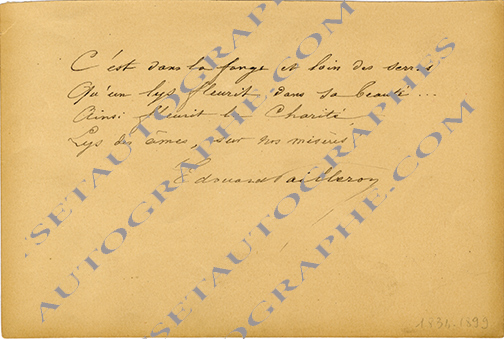 C'est dans la fange et loin des serres
Qu'un lys fleurit dans sa beauté...
Ainsi fleurit la Charité
Lys des âmes, sur nos misères
Edouard Pailleron
1834-1899
AUTOGRAPHE.COM
SETAUTOGRAPHE.COM